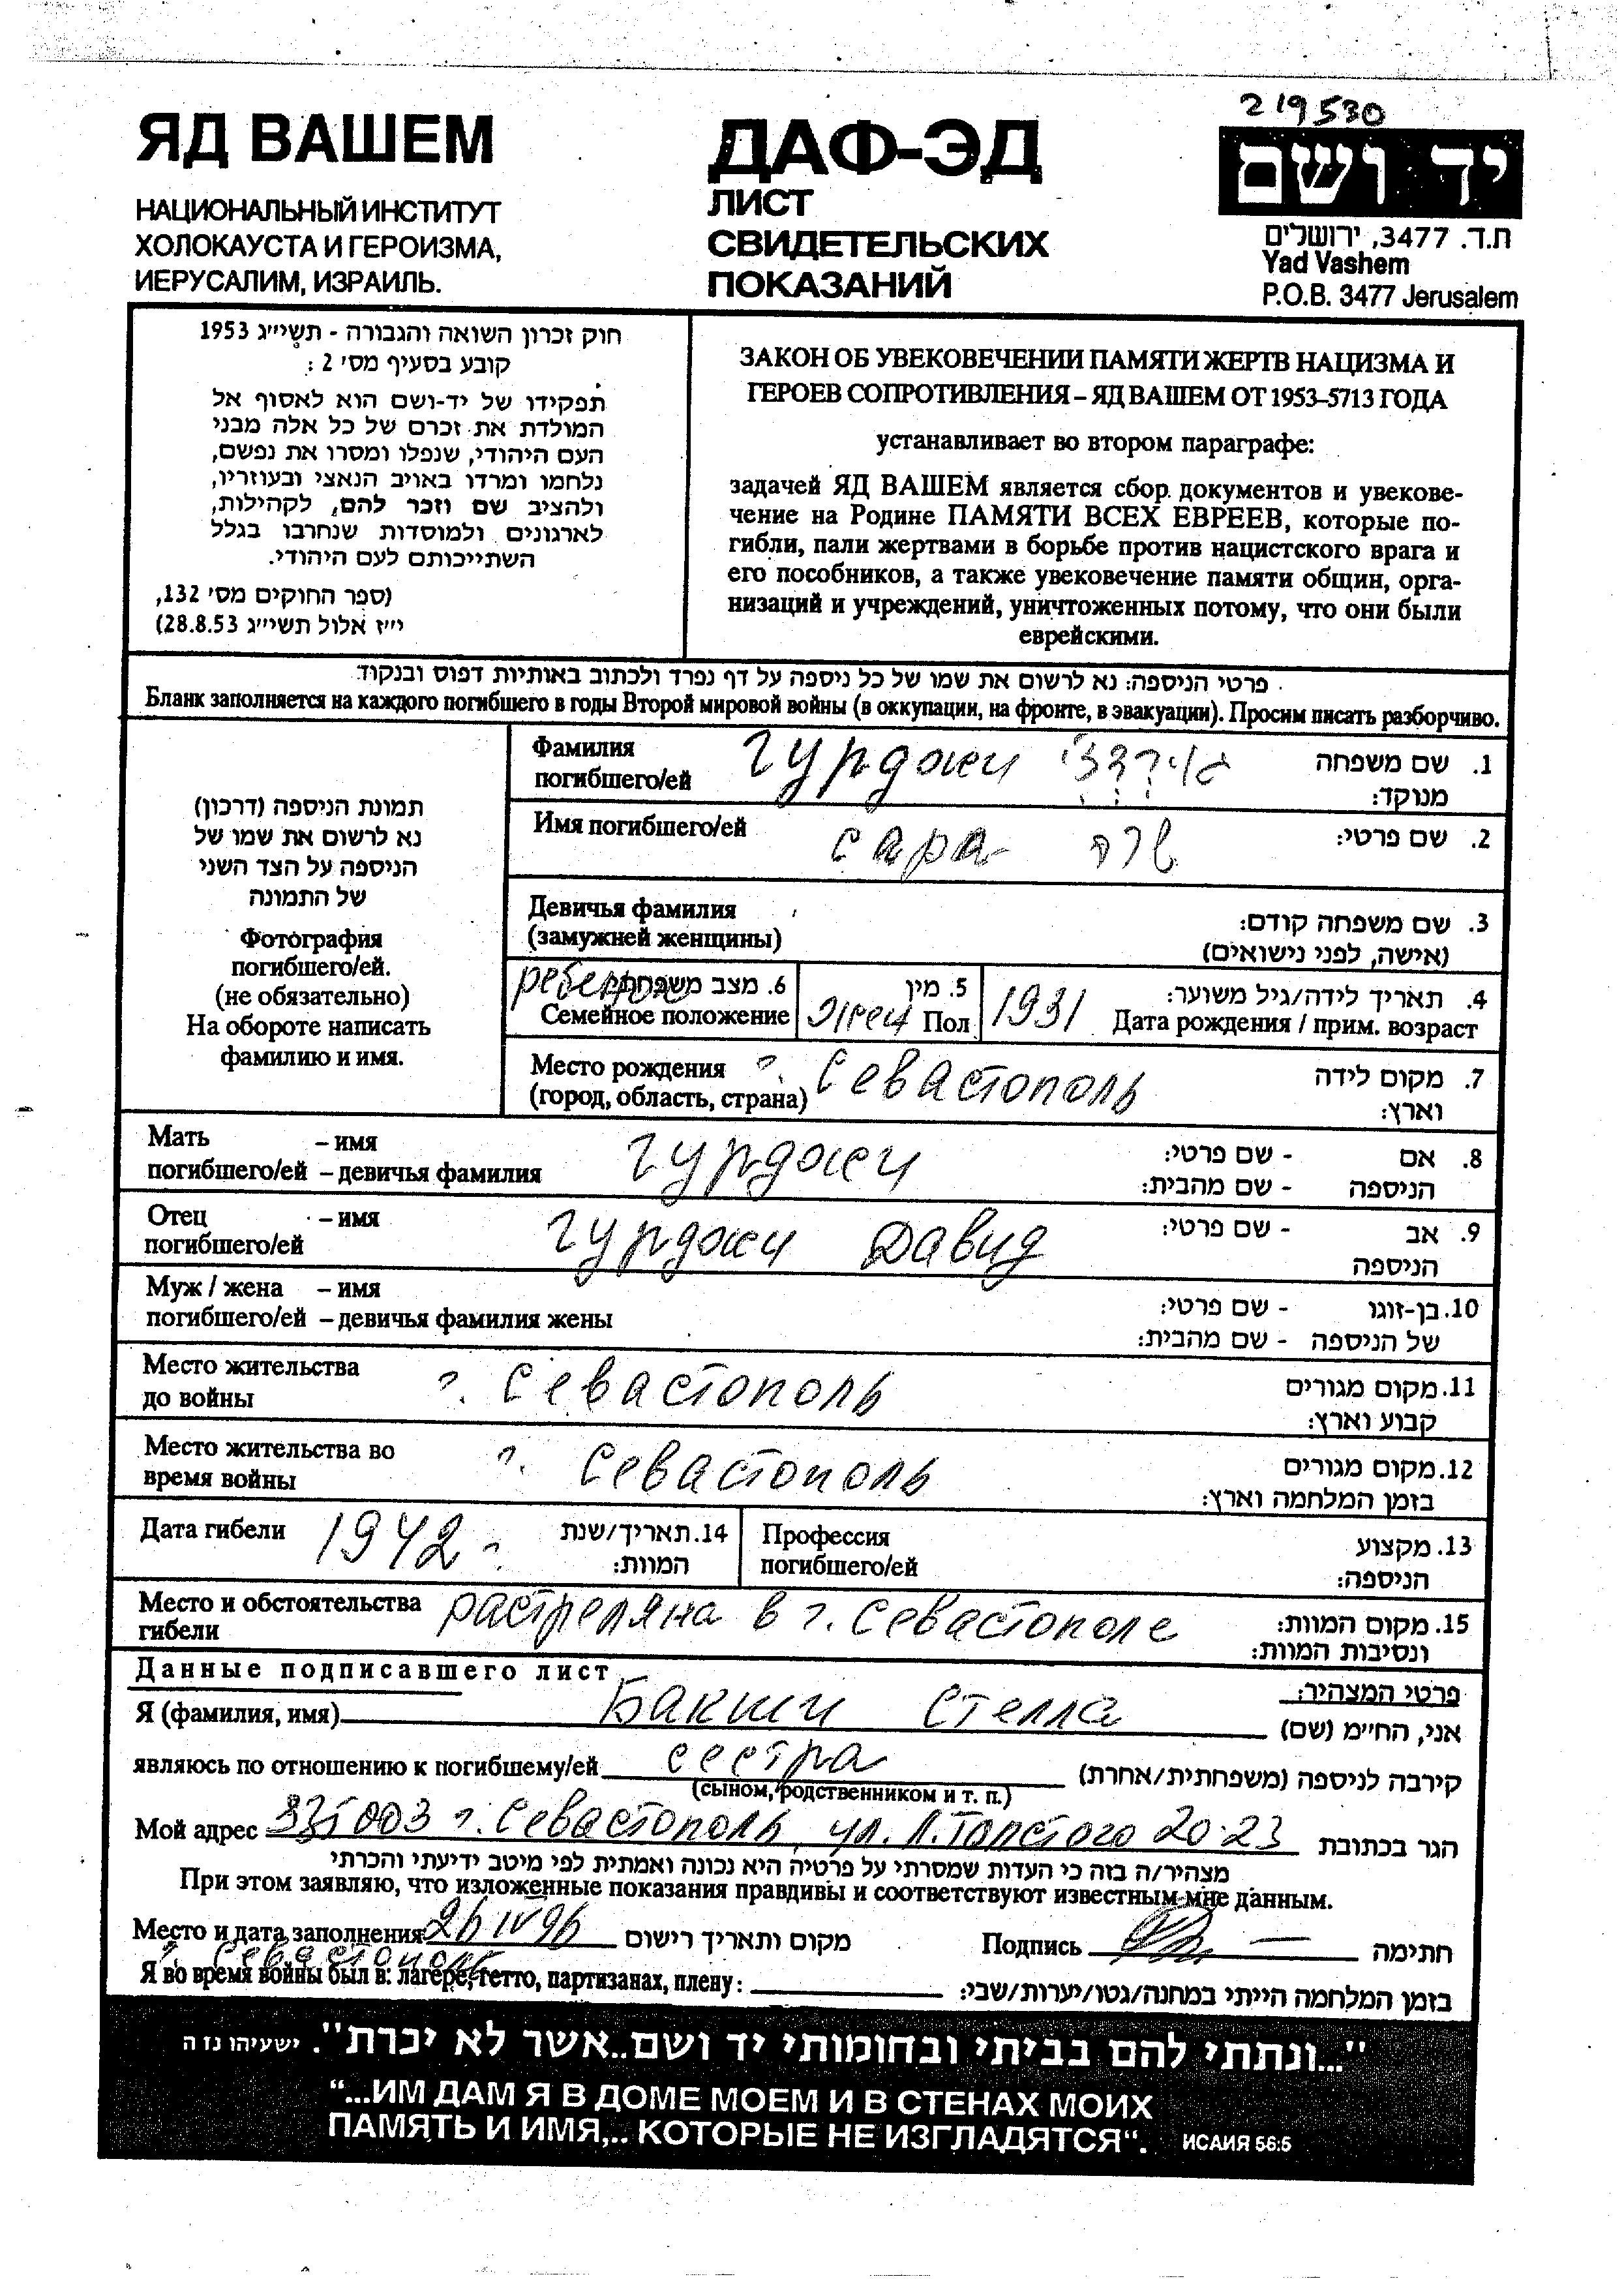 219530
ЯД ВАШЕМ
НАЦИОНАЛЬНЫЙ ИНСТИТУТ
ХОЛОКАУСТА И ГЕРОИЗМА,
ИЕРУСАЛИМ, ИЗРАИЛЬ.
ДАФ-ЭД
ЛИСТ
СВИДЕТЕЛЬСКИХ
ПОКАЗАНИЙ
יד ושם
ת.ד. 3477, ירושלים
Yad Vashem
P.O.B. 3477 Jerusalem
חוק זכרון השואה והגבורה - תשי״ג 1953
קובע בסעיף מס׳ 2 :
תפקידו של יד-ושם הוא לאסוף אל
המולדת את זכרם של כל אלה מבני
העם היהודי, שנפלו ומסרו את נפשם,
נלחמו ומרדו באויב הנאצי ובעוזריו,
ולהציב שם וזכר להם, לקהילות,
לארגונים ולמוסדות שנחרבו בגלל
השתייכותם לעם היהודי.
(ספר החוקים מס׳ 132,
י״ז אלול תשי״ג 28.8.53)
ЗАКОН ОБ УВЕКОВЕЧЕНИИ ПАМЯТИ ЖЕРТВ НАЦИЗМА И
ГЕРОЕВ СОПРОТИВЛЕНИЯ – ЯД ВАШЕМ ОТ 1953–5713 ГОДА
устанавливает во втором параграфе:
задачей ЯД ВАШЕМ является сбор документов и увекове-
чение на Родине ПАМЯТИ ВСЕХ ЕВРЕЕВ, которые по-
гибли, пали жертвами в борьбе против нацистского врага и
его пособников, а также увековечение памяти общин, орга-
низаций и учреждений, уничтоженных потому, что они были
еврейскими.
פרטי הניספה: נא לרשום את שמו של כל ניספה על דף נפרד ולכתוב באותיות דפוס ובנקוד
Бланк заполняется на каждого погибшего в годы Второй мировой войны (в оккупации, на фронте, в эвакуации). Просим писать разборчиво.
תמונת הניספה (דרכון)
נא לרשום את שמו של
הניספה על הצד השני
של התמונה
Фотография
погибшего/ей.
(не обязательно)
На обороте написать
фамилию и имя.
Фамилия Гурджи 1. שם משפחה
погибшего/ей מנוקד:
Имя погибшего/ей Сара שרה 2. שם פרטי:
Девичья фамилия 3. שם משפחה קודם:
(замужней женщины) (אישה, לפני נישואים)
ребенок 6. מצב משפחתי 5. מין 4. תאריך לידה/גיל משוער:
Семейное положение жен Пол 1931 Дата рождения / прим. возраст
Место рождения г. Севастополь 7. מקום לידה
(город, область, страна) וארץ:
Мать – имя Гурджи 8. אם - שם פרטי:
погибшего/ей – девичья фамилия הניספה - שם מהבית:
Отец – имя Гурджи Давид 9. אב - שם פרטי:
погибшего/ей הניספה
Муж / жена – имя 10. בן-זוגו - שם פרטי:
погибшего/ей – девичья фамилия жены של הניספה - שם מהבית:
Место жительства г. Севастополь 11. מקום מגורים
до войны קבוע וארץ:
Место жительства во г. Севастополь 12. מקום מגורים
время войны בזמן המלחמה וארץ:
Дата гибели 1942 г. 14. תאריך/שנת Профессия 13. מקצוע
המוות: погибшего/ей הניספה:
Место и обстоятельства растреляна в г. Севастополе 15. מקום המוות:
гибели ונסיבות המוות:
Данные подписавшего лист פרטי המצהיר:
Я (фамилия, имя) Бакши Стелла אני, החי״מ (שם)
являюсь по отношению к погибшему/ей сестра קירבה לניספה (משפחתית/אחרת)
(сыном, родственником и т. п.)
Мой адрес 335003 г. Севастополь, ул. Л. Толстого 20-23 הגר בכתובת
מצהיר/ה בזה כי העדות שמסרתי על פרטיה היא נכונה ואמתית לפי מיטב ידיעתי והכרתי
При этом заявляю, что изложенные показания правдивы и соответствуют известным мне данным.
Место и дата заполнения 26 IV 96 מקום ותאריך רישום Подпись חתימה
г. Севастополь
Я во время войны был в: лагере, гетто, партизанах, плену: בזמן המלחמה הייתי במחנה/גטו/יערות/שבי:
"...ונתתי להם בביתי ובחומותי יד ושם..אשר לא יכרת". ישעיהו נז ה
“...ИМ ДАМ Я В ДОМЕ МОЕМ И В СТЕНАХ МОИХ
ПАМЯТЬ И ИМЯ,.. КОТОРЫЕ НЕ ИЗГЛАДЯТСЯ“. ИСАИЯ 56:5